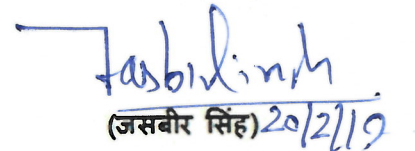 Jasbir Singh
(जसबीर सिंह) 20/2/19